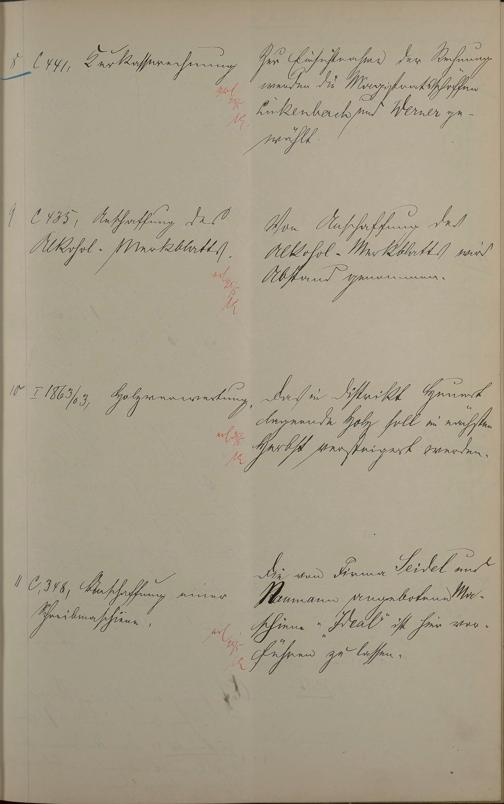 8 C 441, Kurkassenrechnung
Zur Einsichtnahme der Rechnung
werden die Magistratsschöffen
Lückenbach und Werner ge-
wählt.
9 C 435, Anschaffung des
Alkohol-Merkblatts.
Von Anschaffung des
Alkohol-Merkblatts wird
Abstand genommen.
10 I 1863/03, Holzverwertung.
Das in Distrikt
liegende Holz soll im nächsten
Herbst versteigert werden.
11 C, 348, Anschaffung einer
Schreibmaschiene.
Die von Firma Seidel und
Naumann angebotene Ma-
schiene "Ideal" ist hier vor-
führen zu lassen.